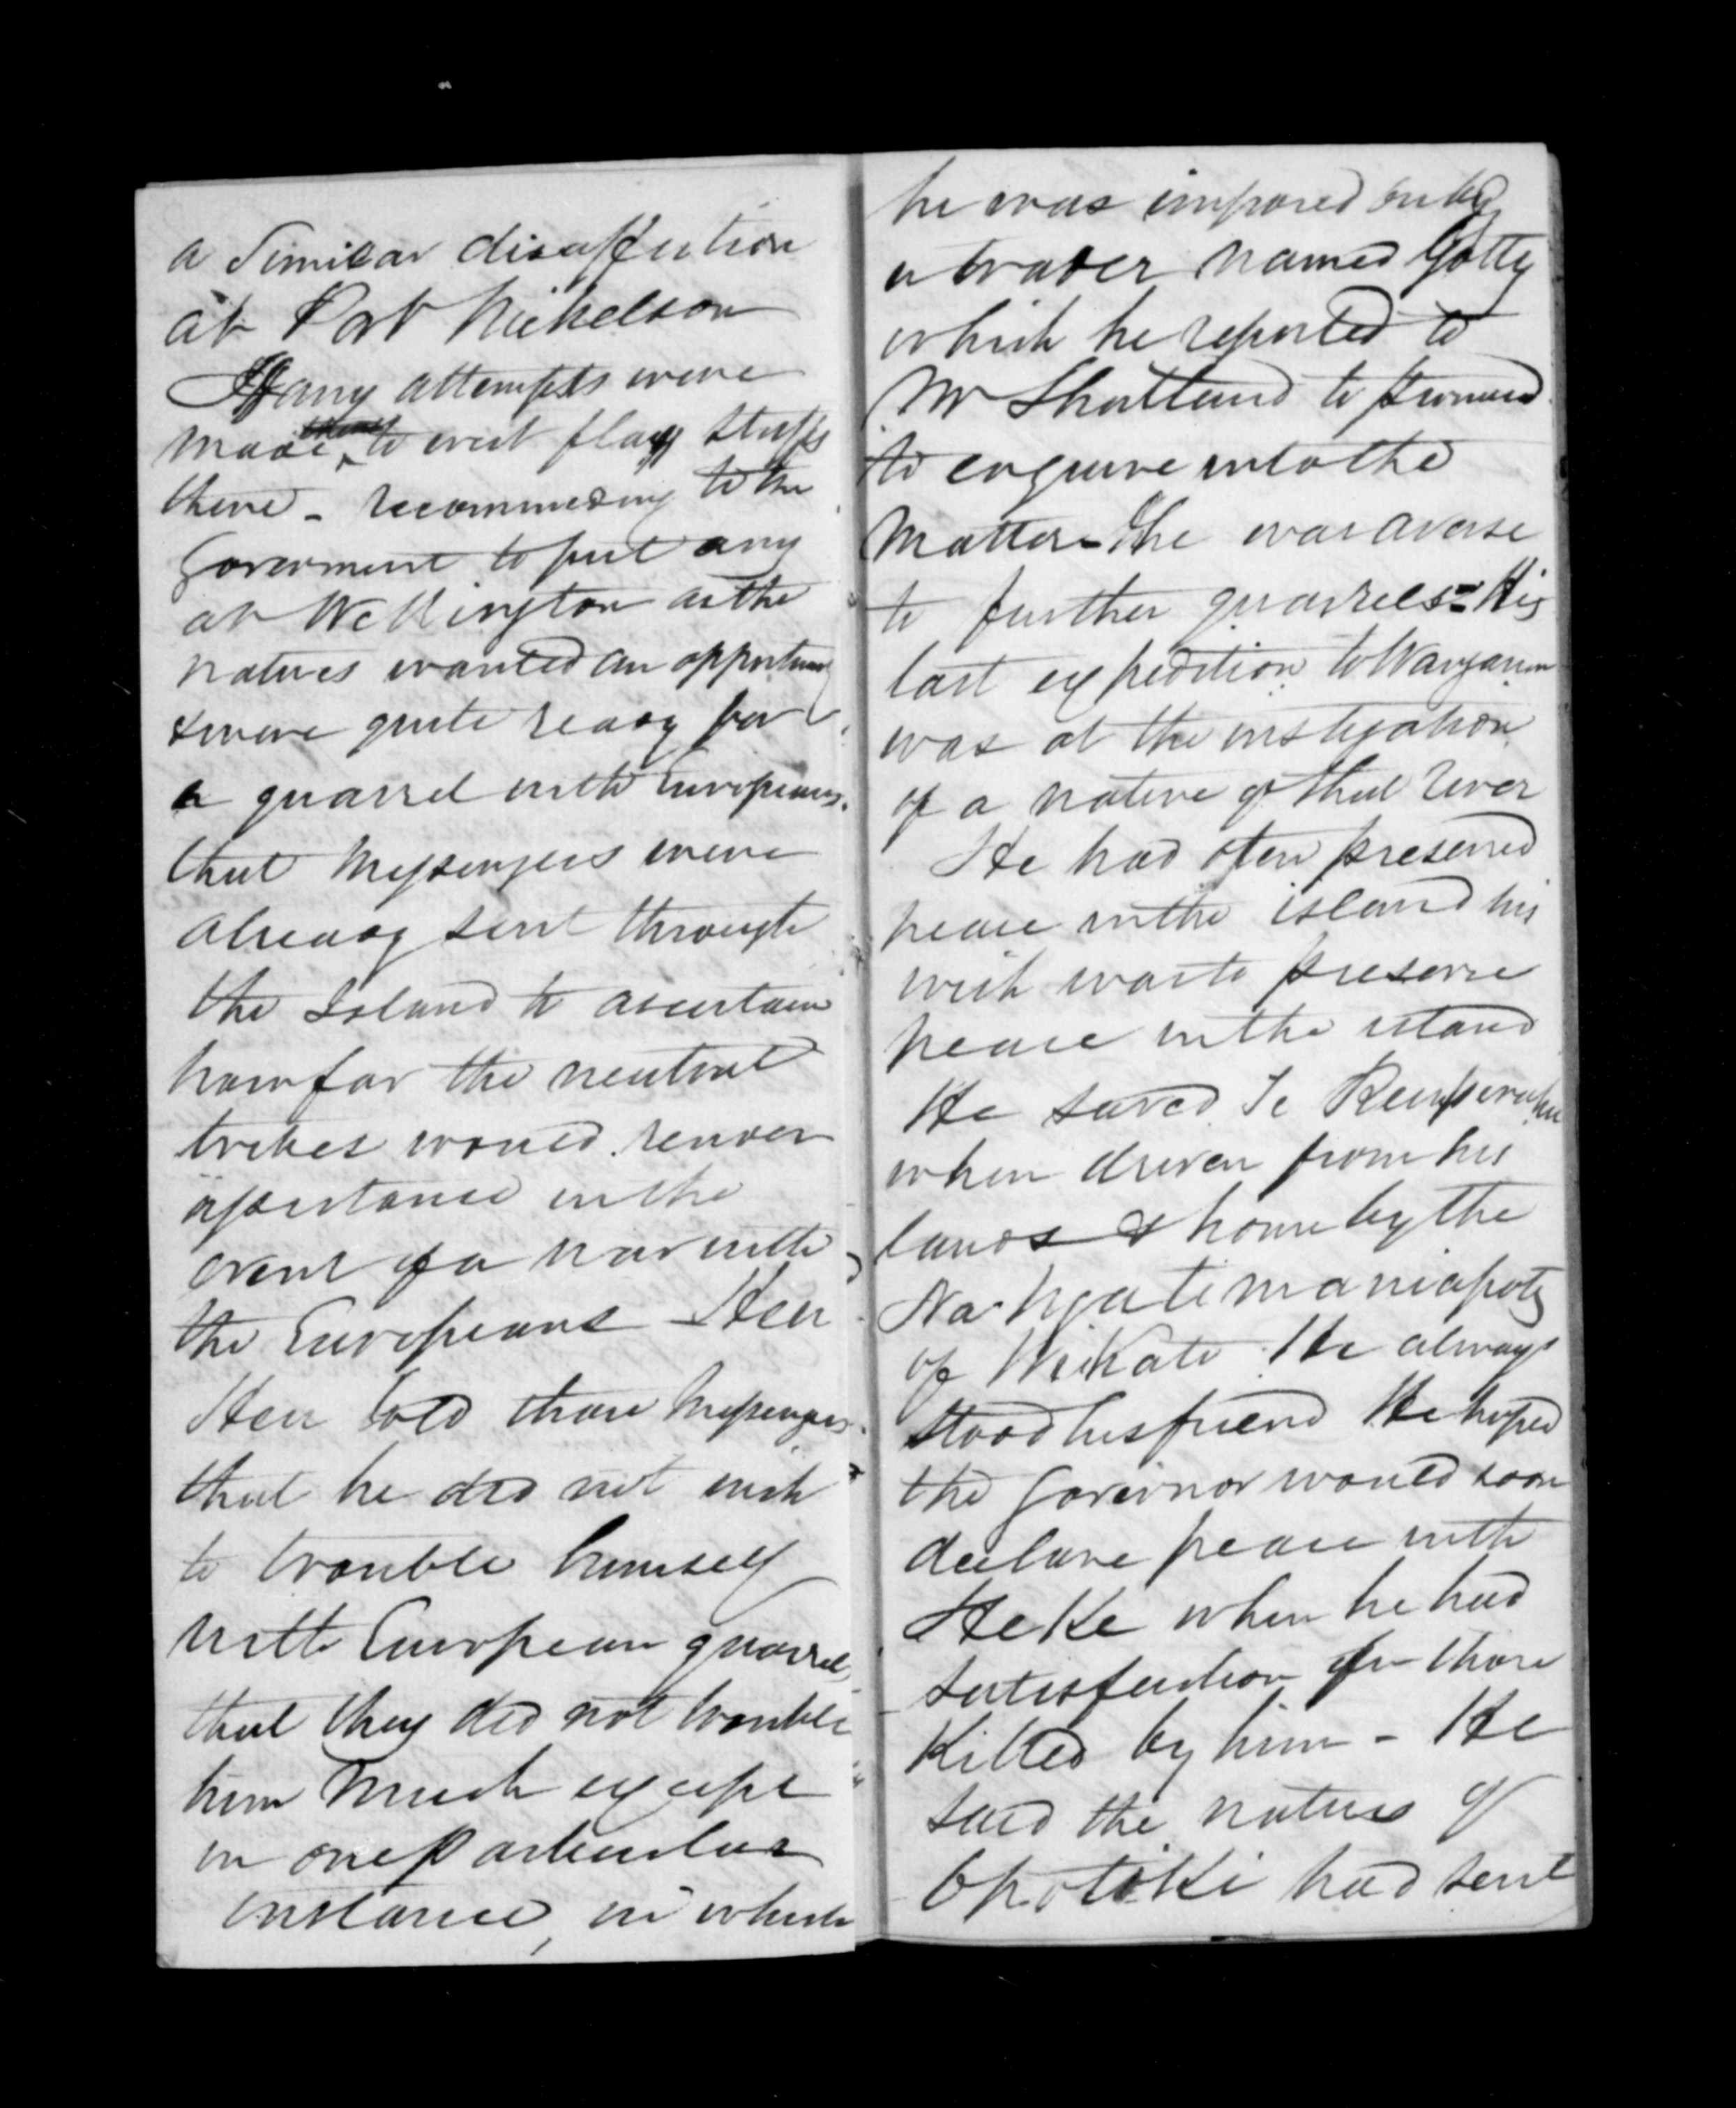 a Similar disaffection
at Port Nickelson
If any attempts were
made to erect flag staffs
there - recommeding to the
Goverment to put any
at Wellington as the
natives wanted an opportunity
& were quite ready for
a quarrel with Europeans.
that Messengers were
already sent through
the Island to ascertain
how far the neutral
tribes would render
assistance in the
event of a war with
the Europeans - Heu
Heu told those Messengers
that he did not wish
to trouble himself
with European quarrels
that they did not trouble
him much except
in one particular
instance, in which
he was imposed on by
a trader named Gotty
which he reported to
Mr Shortland to
to enquire into the
Matter - he was averse
to further quarrels = His
last expedition to Wanganui
was at the instigation
of a native of that River
He had often preserved
peace in the island his
wish was to preserve
peace in the island
He saved Te Rauperaha
when driven from his
lands & home by the
Na Ngatimaniapoty
of WiKato. He always
stood his friend He hoped
the Governor would soon
declare peace with
HeKe when he had
satisfaction for those
Killed by him - He
said the natives of
OpotiKi had sent